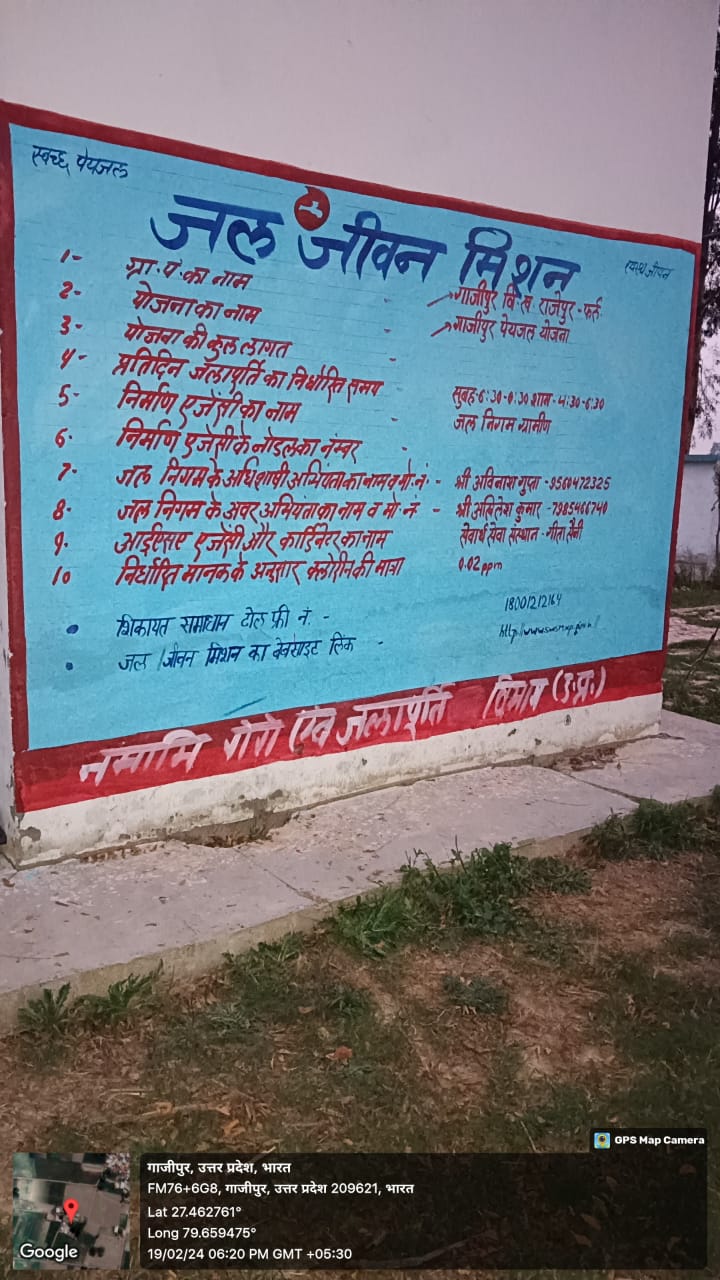 स्वच्छ पेयजल
जल जीवन मिशन
स्वस्थ जीवन
1- ग्रा.पं.का नाम - गाजीपुर वि.ख. राजेपुर-फर्रु.
2- योजना का नाम - गाजीपुर पेयजल योजना
3- योजना की कुल लागत -
4- प्रतिदिन जलापूर्ति का निर्धारित समय - सुबह-6:30-8:30 शाम-4:30-6:30
5- निर्माण एजेंसी का नाम - जल निगम ग्रामीण
6- निर्माण एजेंसी के नोडल का नम्बर -
7- जल निगम के अधिशाषी अभियंता का नाम व मो.नं. - श्री अविनाश गुप्ता -9560472325
8- जल निगम के अवर अभियंता का नाम व मो.नं - श्री अखिलेश कुमार -7985466740
9- आईएसए एजेंसी और कार्डिनेटर का नाम सेवार्थ सेवा संस्थान - गीता सैनी
10 निर्धारित मानक के अनुसार क्लोरीन की मात्रा 0.02 ppm
• शिकायत समाधान टोल फ्री नं. - 18001212164
• जल जीवन मिशन का वेबसाइट लिंक -
नमामि गंगे एवं जलापूर्ति विभाग (उ.प्र.)
GPS Map Camera
गाजीपुर, उत्तर प्रदेश, भारत
FM76+6G8, गाजीपुर, उत्तर प्रदेश 209621, भारत
Lat 27.462761°
Long 79.659475°
19/02/24 06:20 PM GMT +05:30
Google